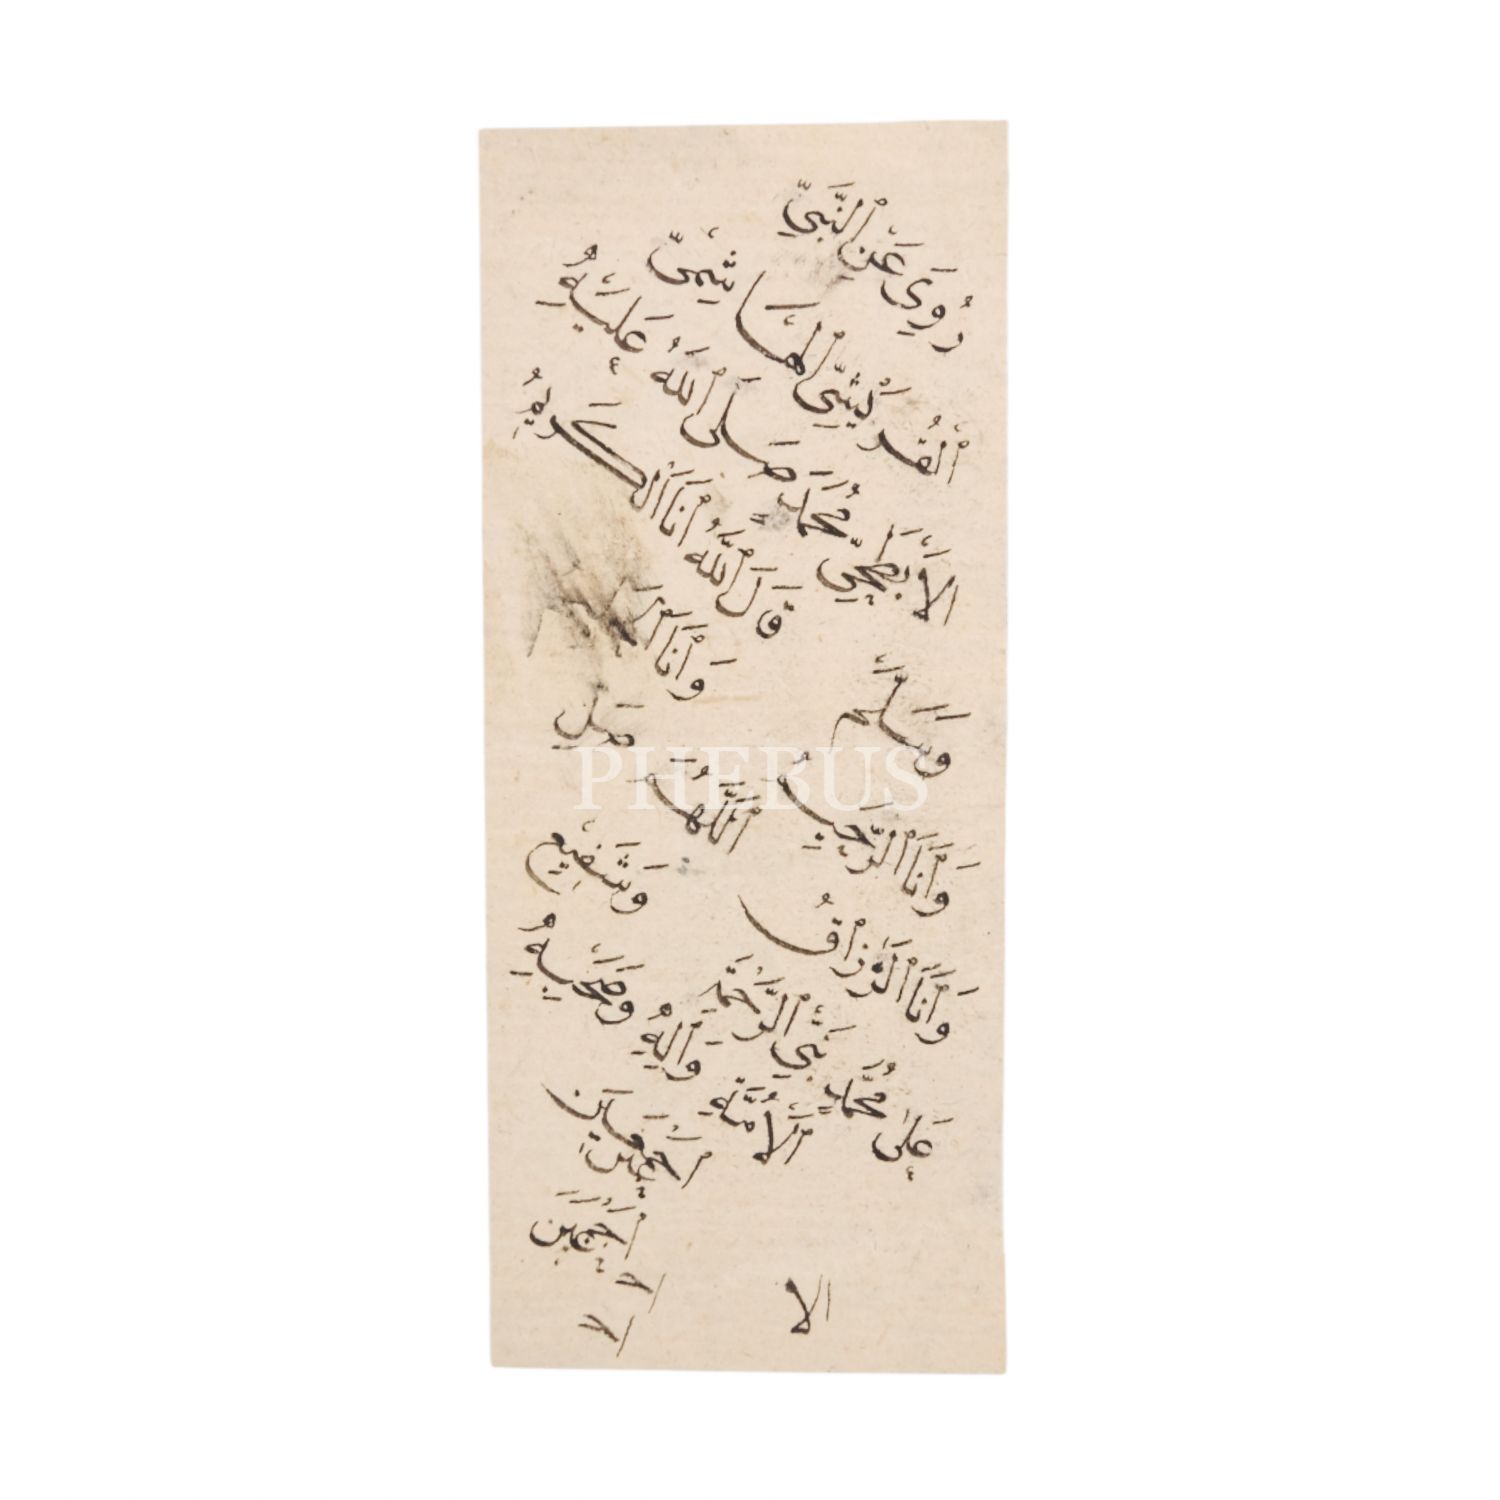 رُوِيَ عَنِ النَّبِيِّ
الْقُرَيْشِيِّ الْهَاشِمِيِّ
الْأَبْطَحِيِّ مُحَمَّدٍ صَلَى اللهُ عَلَيْهِ
وَسَلَّمَ
قَالَ اللهُ أَنَا الْكَرِيمُ
وَأَنَا الرَّحِيمُ
وَأَنَا
وَأَنَا الرَّزَّاقُ
اَللّٰهُمَّ صَلِّ
عَلَى مُحَمَّدٍ نَبِيِّ الرَّحْمَةِ
وَشَفِيعِ
الْأُمَّةِ وَآلِهِ وَصَحْبِهِ
أَجْمَعِينَ
أَجْمَعِينَ
الا
PHEBUS